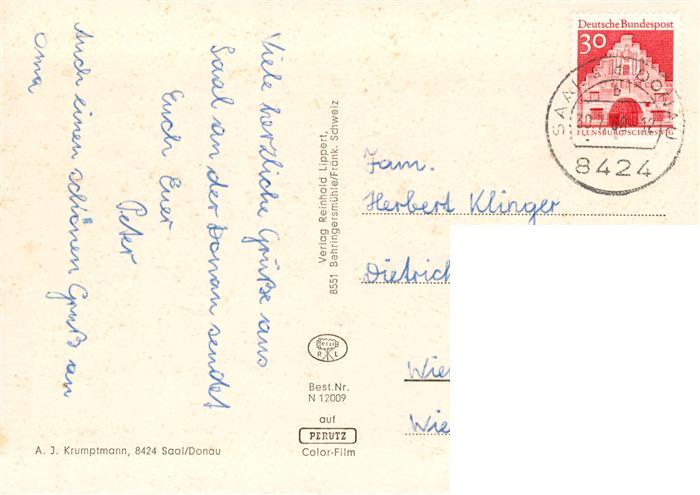 Viele herzliche Grüße aus
Saal an der Donau sendet
Euch Euer
Peter
Auch einen schönen Gruß an
Oma
A. J. Krumptmann, 8424 Saal/Donau
Verlag Reinhold Lippert,
8551 Behringersmühle/Fränk. Schweiz
R L
Best.Nr.
N 12009
auf
PERUTZ
Color-Film
Deutsche Bundespost
30
FLENSBURG/SCHLESWIG
SAAL DONAU
8424
Fam.
Herbert Klinger
Dietrich
Wie
Wie